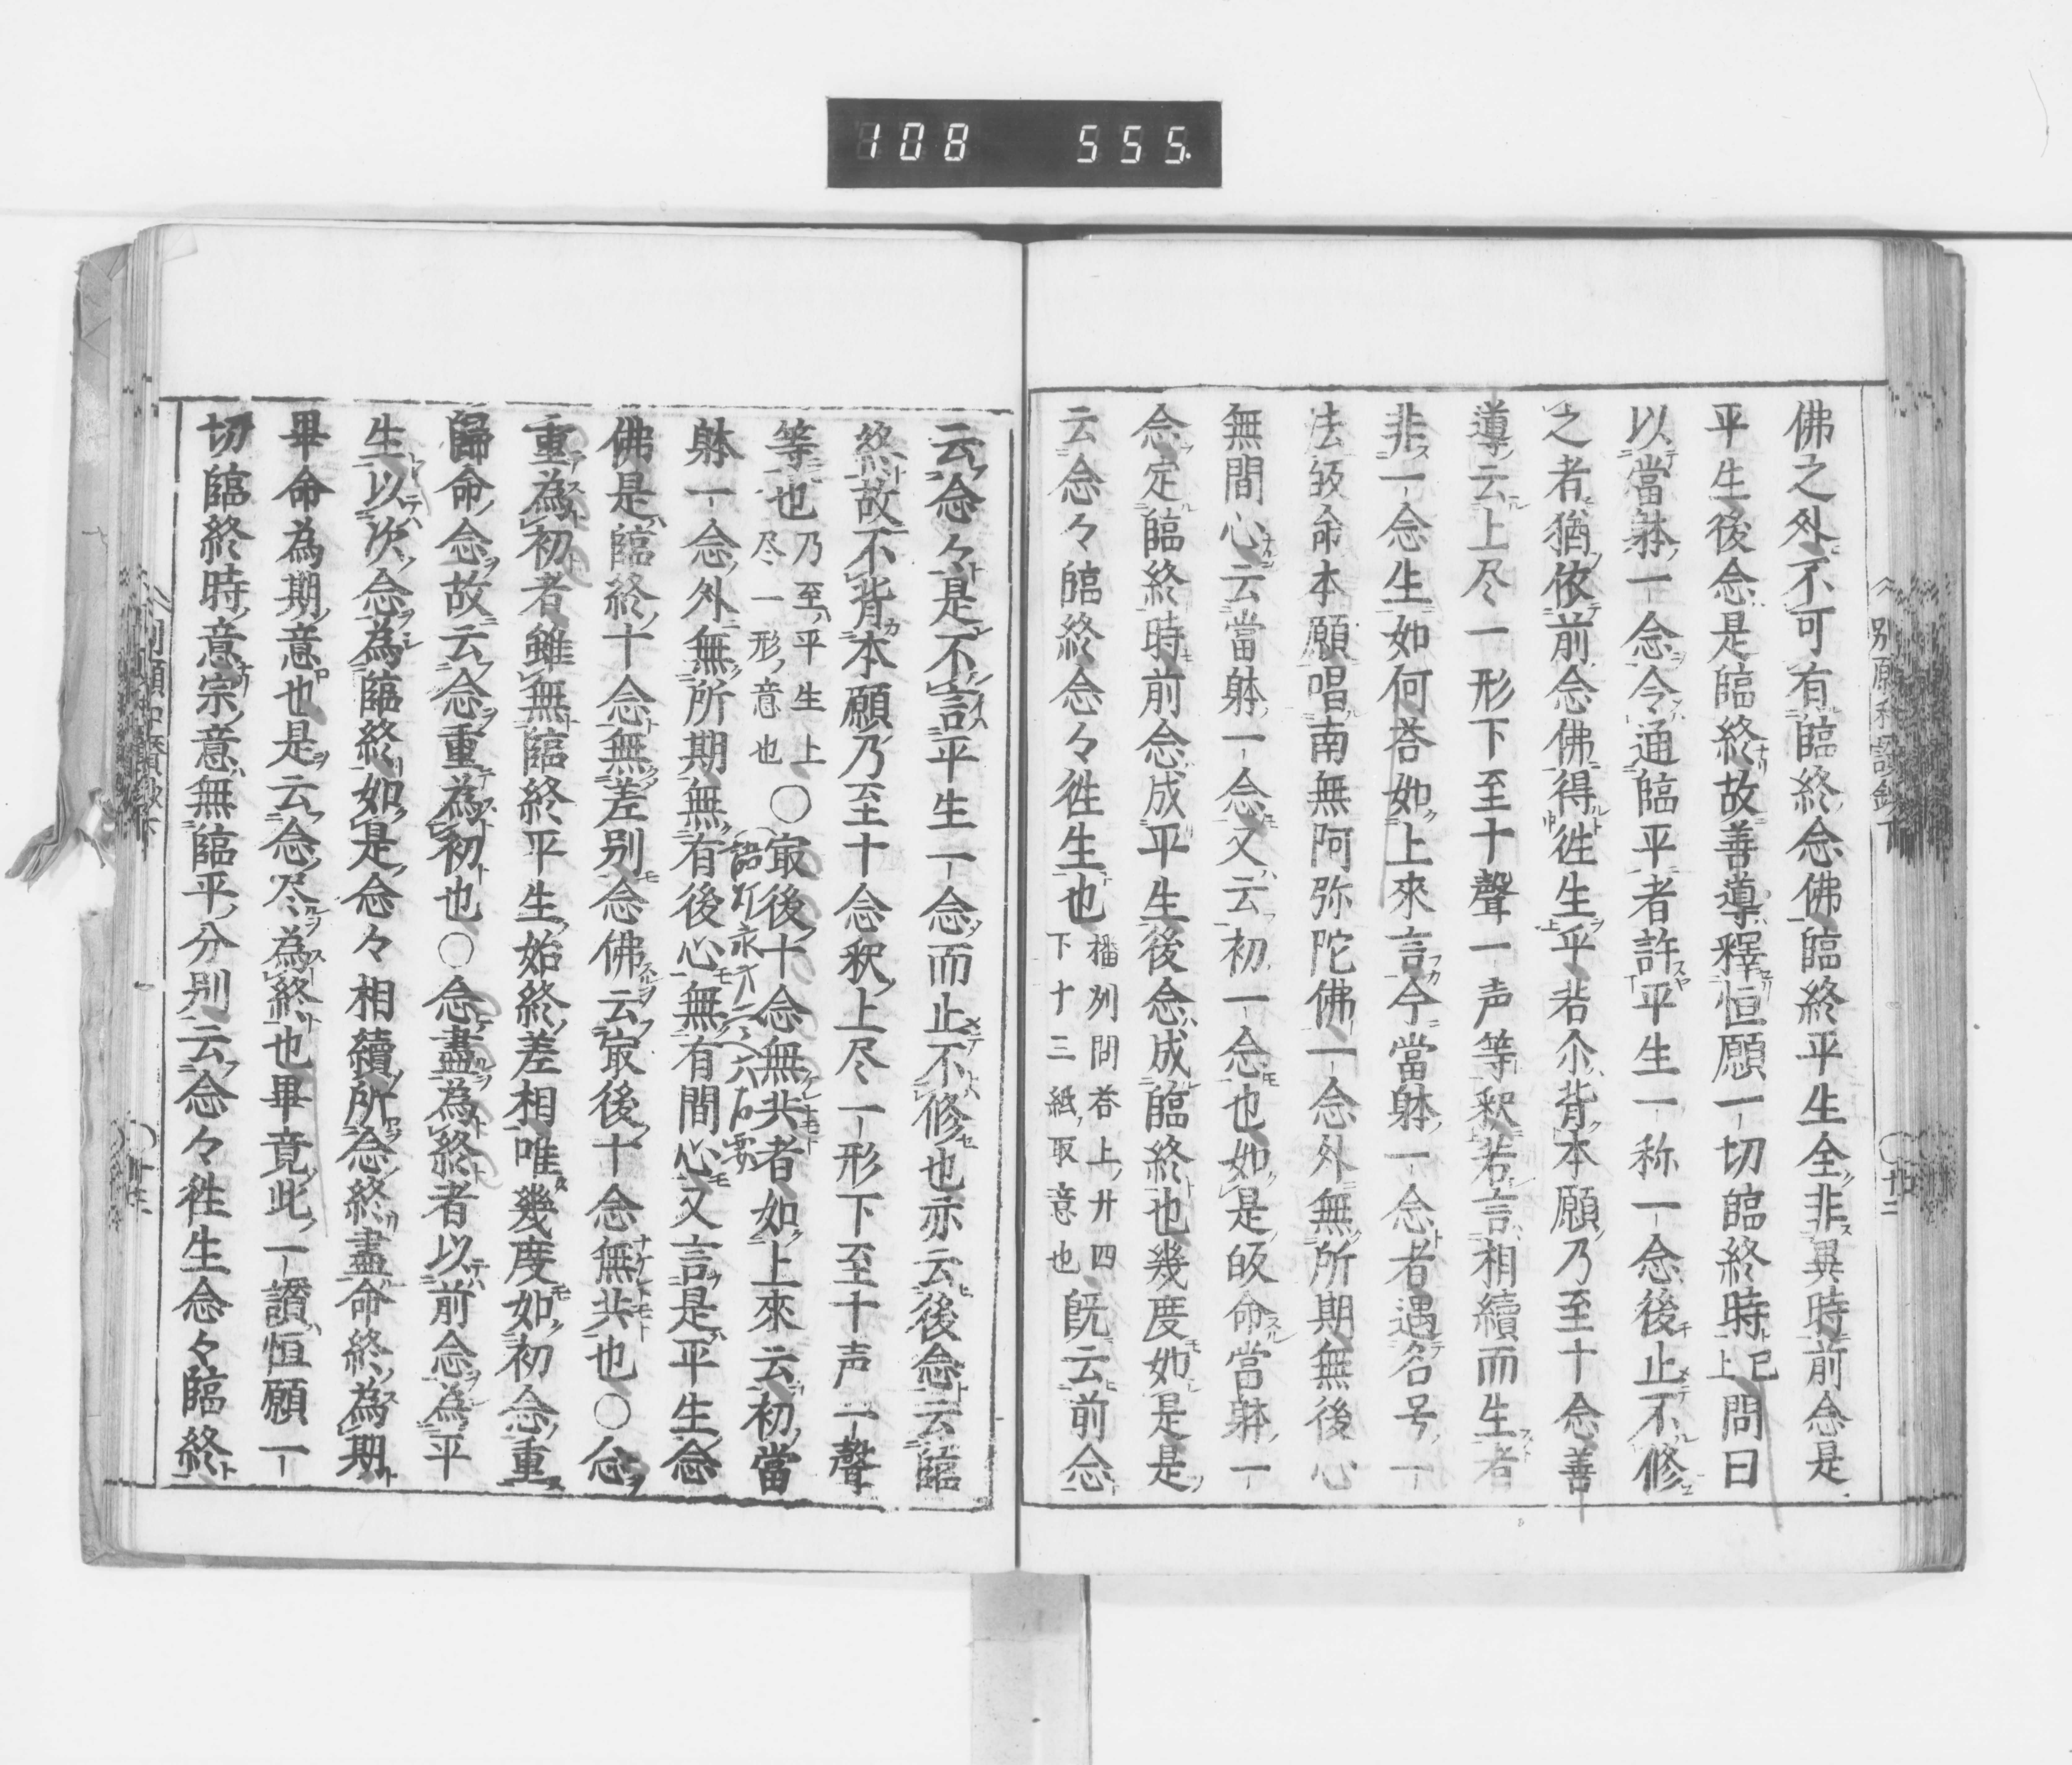 108 555.
別願和讚鈔下
廿二
佛之外不可有臨終念佛臨終平生全非異時前念是
平生後念是臨終故善導釋恒願一切臨終時上已問曰
以當躰一念令通臨平者許平生一称一念後止不修
之者猶依前念佛得徃生乎若尒背本願乃至十念善
導云上尽一形下至十聲一声等釈若言相續而生者
非一念生如何荅如上來言今當躰一念者遇名号一
法皈命本願唱南無阿弥陀佛一念外無所期無後心
無間心云當躰一念又云初一念也如是皈命當躰一
念定臨終時前念成平生後念成臨終也幾度如是是
云念々臨終念々徃生也播列問荅上廿四
下十三紙取意也既云前念
云念々是不言平生一念而止不修也亦云後念云臨
終故不背本願乃至十念釈上尽一形下至十声一聲
等也乃至平生上
尽一形意也○冣後十念無共者如上來云初當
躰一念外無所期無有後心無有間心又言是平生念
佛是臨終十念無差别念佛云冣後十念無共也○念
重為初者雖無臨終平生始終差相唯幾度如初念重
歸命念故云念重為初也○念盡為終者以前念為平
生以次念為臨終如是念々相續所念終盡命終為期
畢命為期意也是云念尽為終也畢竟此一讚恒願一
切臨終時意宗意無臨平分别云念々徃生念々臨終